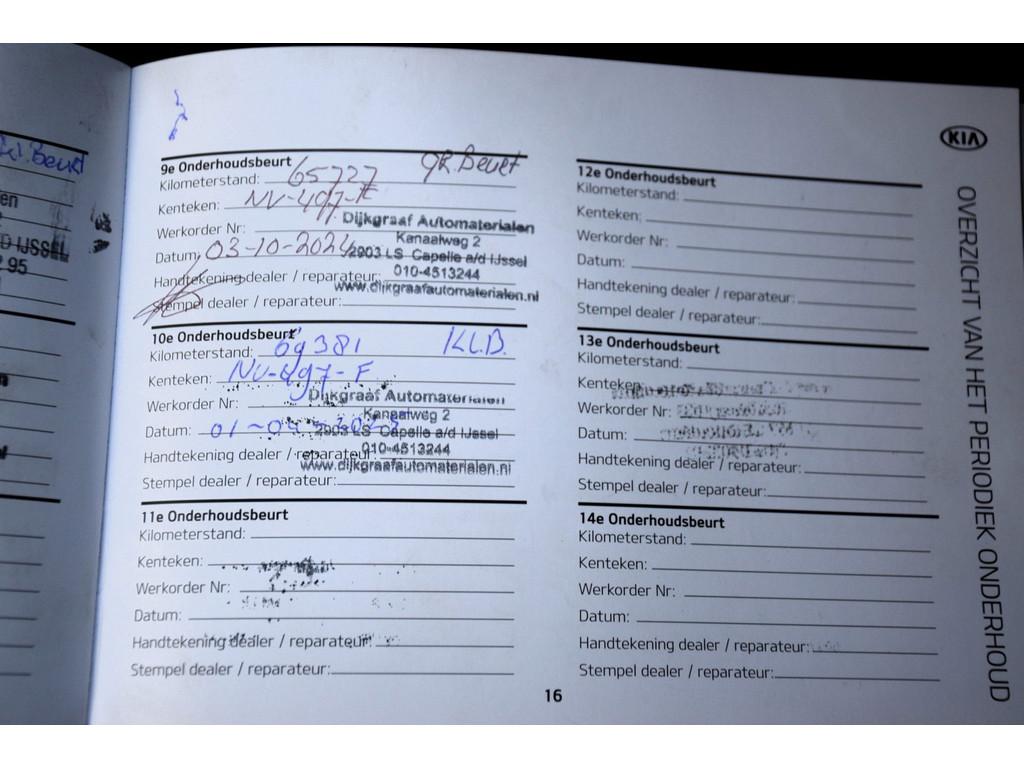 d. Beurt
en
D IJSSEL
95
9e Onderhoudsbeurt
GR. Beurt
Kilometerstand: 65727
Kenteken: NV-497-F
Werkorder Nr:
Dijkgraaf Automaterialen
Kanaalweg 2
Datum: 03-10-2024
2903 LS Capelle a/d IJssel
Handtekening dealer / reparateur:
010-4513244
www.dijkgraafautomaterialen.nl
Stempel dealer / reparateur:
10e Onderhoudsbeurt
Kilometerstand: 69381 KL.B.
Kenteken: NV-497-F
Werkorder Nr:
Dijkgraaf Automaterialen
Kanaalweg 2
Datum: 01-04-
2903 LS Capelle a/d IJssel
Handtekening dealer / reparateur:
010-4513244
www.dijkgraafautomaterialen.nl
Stempel dealer / reparateur:
11e Onderhoudsbeurt
Kilometerstand:
Kenteken:
Werkorder Nr:
Datum:
Handtekening dealer / reparateur:
Stempel dealer / reparateur:
12e Onderhoudsbeurt
Kilometerstand:
Kenteken:
Werkorder Nr:
Datum:
Handtekening dealer / reparateur:
Stempel dealer / reparateur:
13e Onderhoudsbeurt
Kilometerstand:
Kenteken:
Werkorder Nr:
Datum:
Handtekening dealer / reparateur:
Stempel dealer / reparateur:
14e Onderhoudsbeurt
Kilometerstand:
Kenteken:
Werkorder Nr:
Datum:
Handtekening dealer / reparateur:
Stempel dealer / reparateur:
16
KIA
OVERZICHT VAN HET PERIODIEK ONDERHOUD